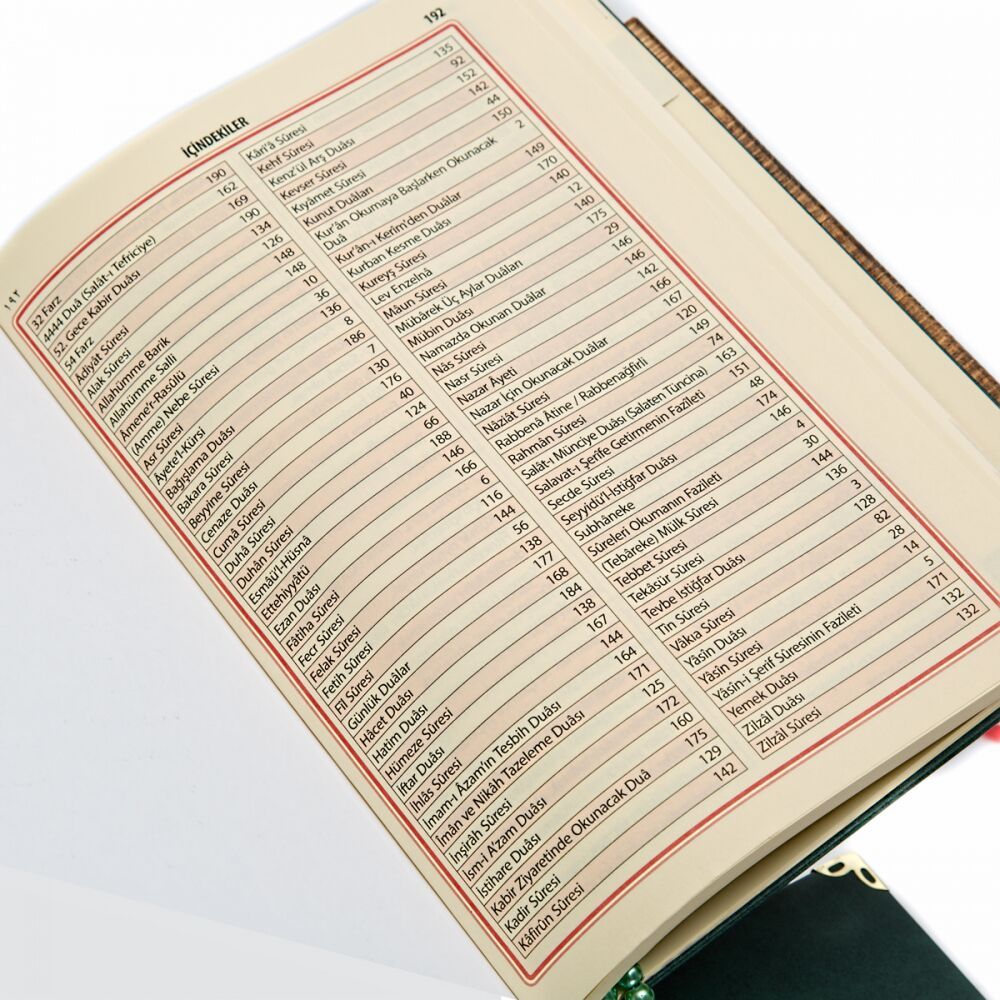 192
İÇİNDEKİLER
١٩٢
32 Farz 190
4444 Duâ (Salât-ı Tefriciye) 162
52. Gece Kabir Duâsı 169
54 Farz 190
Âdiyât Sûresi 134
Alak Sûresi 126
Allahümme Barik 148
Allahümme Salli 148
Âmene'r-Rasûlü 10
(Amme) Nebe Sûresi 36
Asr Sûresi 136
Âyete'l-Kürsi 8
Bağışlama Duâsı 186
Bakara Sûresi 7
Beyyine Sûresi 130
Cenaze Duâsı 176
Cumâ Sûresi 40
Duhâ Sûresi 124
Duhân Sûresi 66
Esmâü'l-Hüsnâ 188
Ettehiyyâtü 146
Ezan Duâsı 166
Fâtiha Sûresi 6
Fecr Sûresi 116
Felak Sûresi 144
Fetih Sûresi 56
Fîl Sûresi 138
Günlük Dualar 177
Hâcet Duâsı 168
Hatim Duâsı 184
Hümeze Sûresi 138
İftar Duâsı 167
İhlâs Sûresi 144
İmam-ı Âzam'ın Tesbih Duâsı 164
Îmân ve Nikâh Tazeleme Duâsı 171
İnşirâh Sûresi 125
İsm-i A'zam Duâsı 172
İstihare Duâsı 160
Kabir Ziyaretinde Okunacak Duâ 175
Kadir Sûresi 129
Kâfirûn Sûresi 142
Kâri'â Sûresi 135
Kehf Sûresi 92
Kenz'ül Arş Duâsı 152
Kevser Sûresi 142
Kıyâmet Sûresi 44
Kunut Duâları 150
Kur'ân Okumaya Başlarken Okunacak 2
Duâ
Kur'ân-ı Kerîm'den Duâlar 149
Kurban Kesme Duâsı 170
Kureyş Sûresi 140
Lev Enzelnâ 12
Mâun Sûresi 140
Mübârek Üç Aylar Duâları 175
Mübin Duâsı 29
Namazda Okunan Duâlar 146
Nâs Sûresi 146
Nasr Sûresi 142
Nazar Âyeti 166
Nazar İçin Okunacak Duâlar 167
Nâziât Sûresi 120
Rabbenâ Âtine / Rabbenağfirli 149
Rahmân Sûresi 74
Salât-ı Münciye Duâsı (Salaten Tüncina) 163
Salavat-ı Şerife Getirmenin Fazîleti 151
Secde Sûresi 48
Seyyidü'l-İstiğfar Duâsı 174
Subhâneke 146
Sûreleri Okumanın Fazîleti 4
(Tebâreke) Mülk Sûresi 30
Tebbet Sûresi 144
Tekâsür Sûresi 136
Tevbe İstiğfar Duâsı 3
Tîn Sûresi 128
Vâkıa Sûresi 82
Yâsîn Duâsı 28
Yâsîn Sûresi 14
Yâsîn-i Şerif Sûresinin Fazîleti 5
Yemek Duâsı 171
Zilzâl Duâsı 132
Zilzâl Sûresi 132